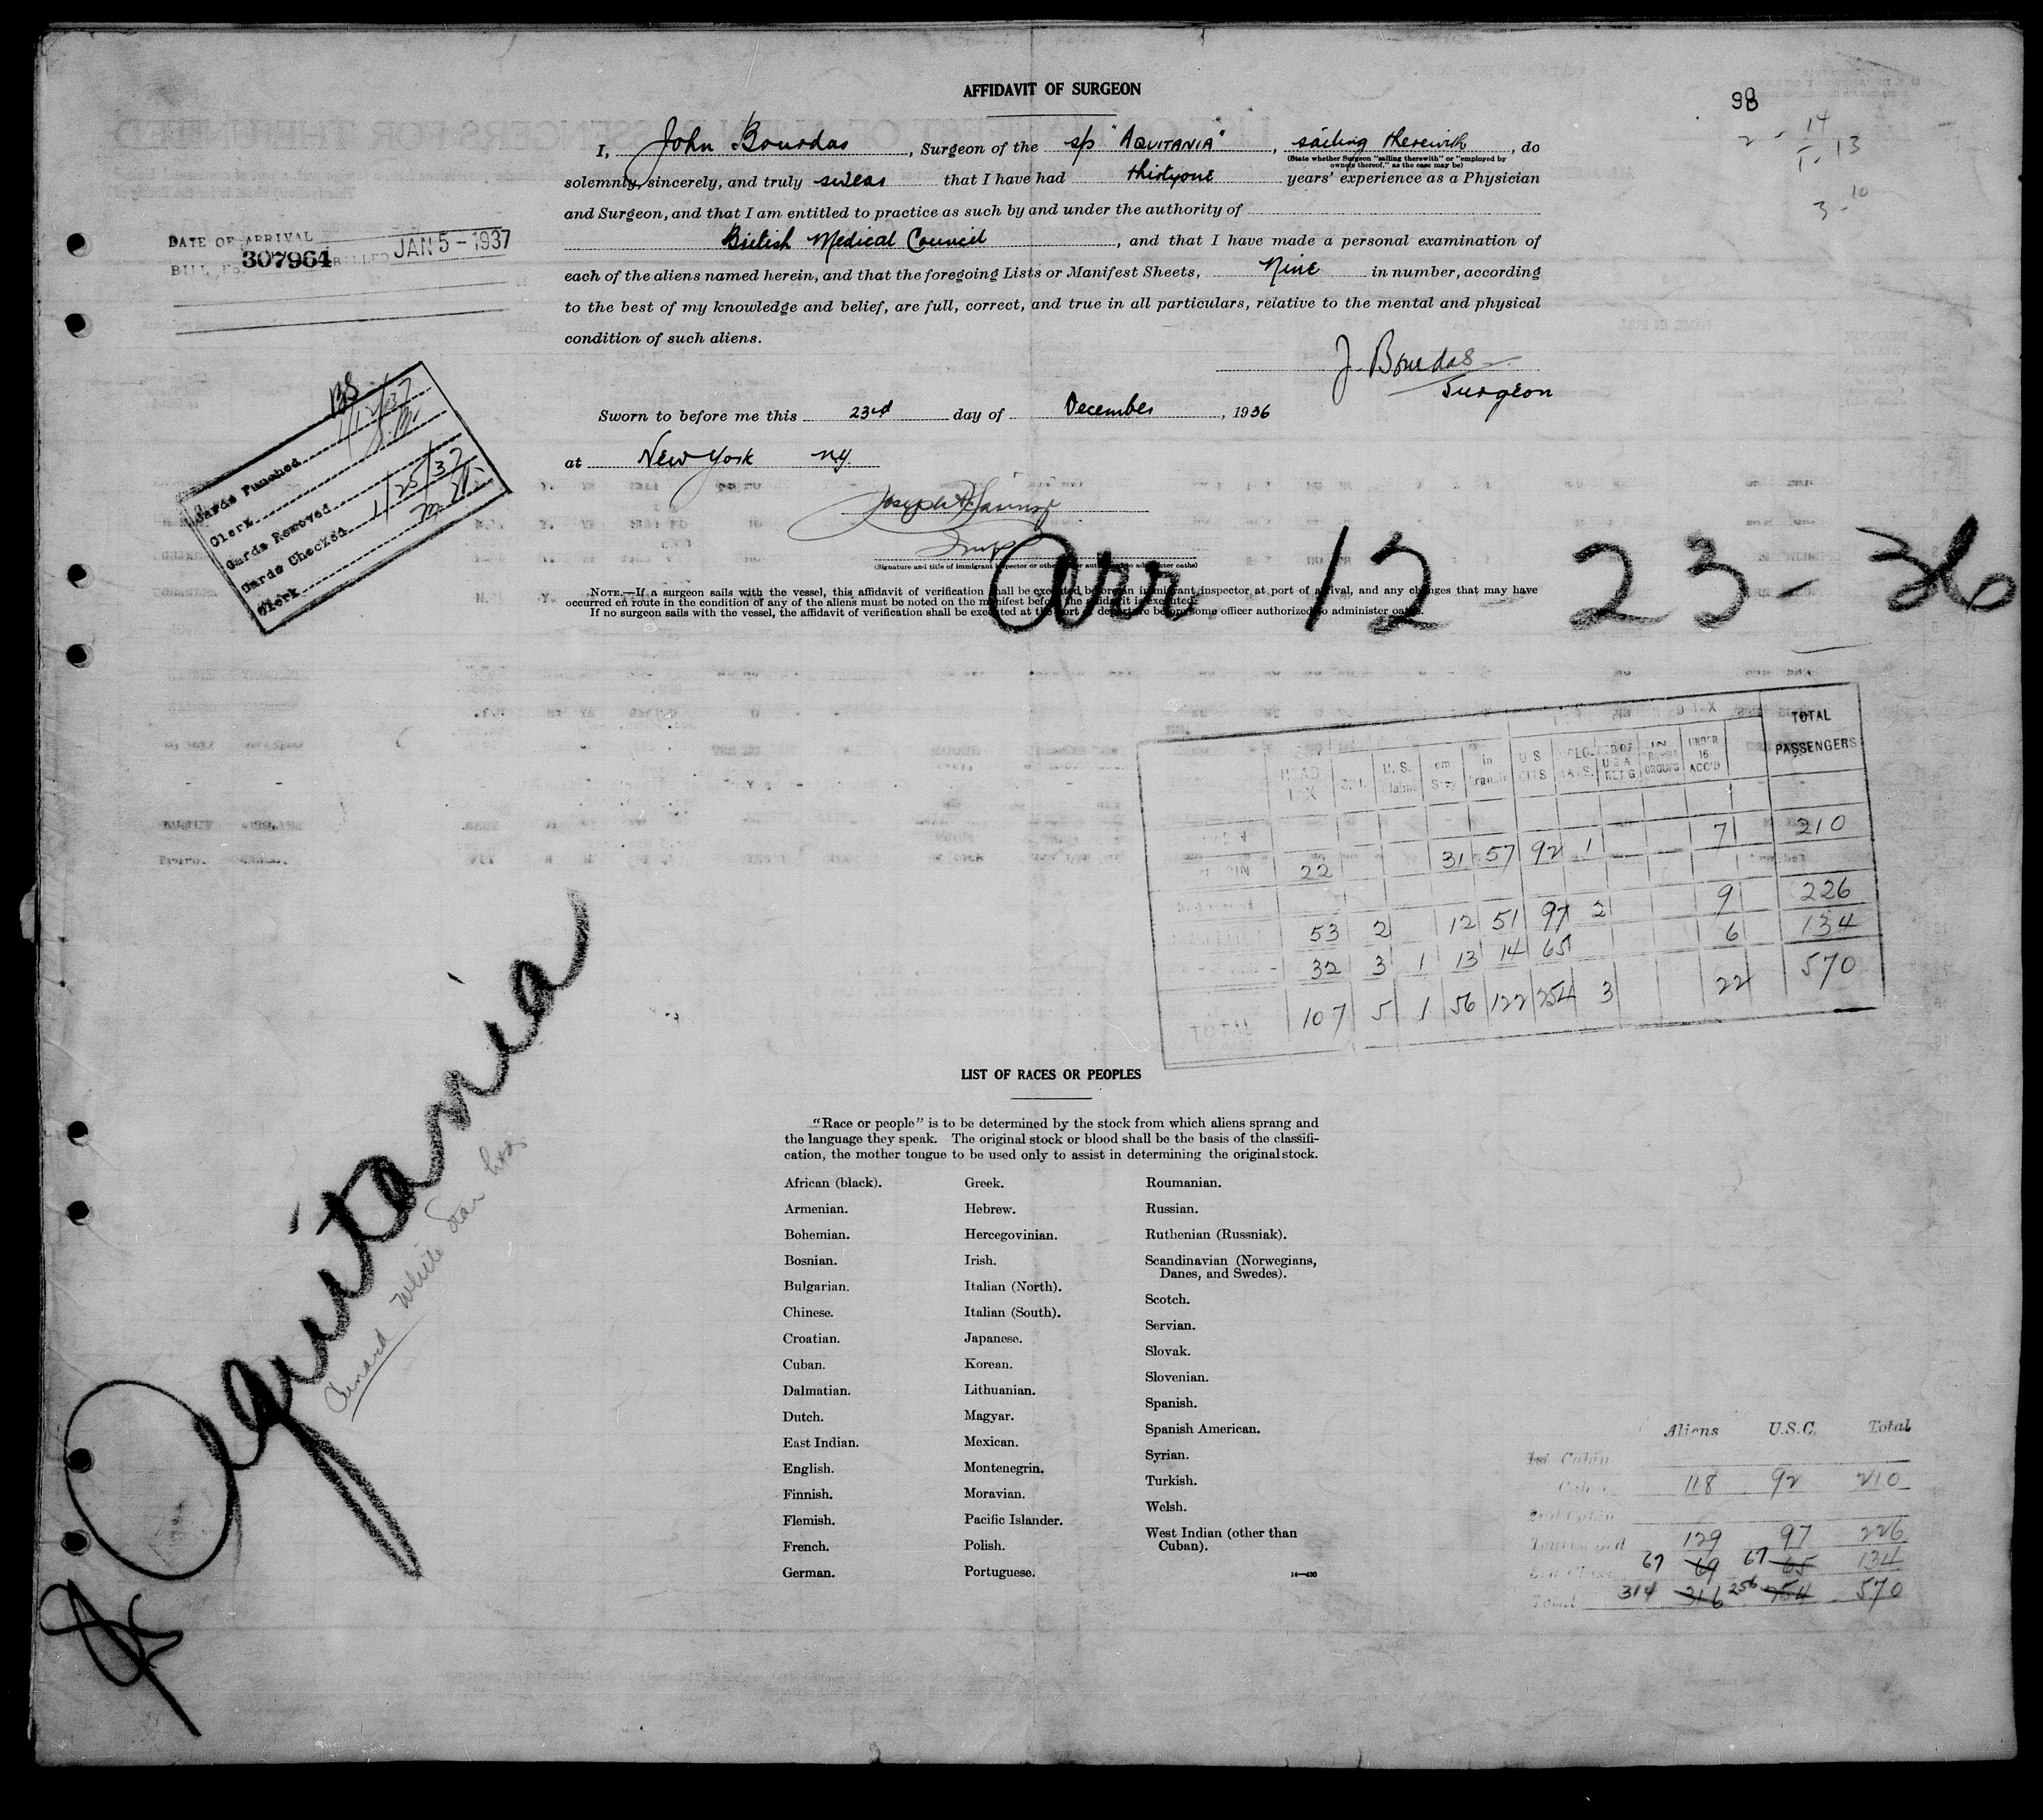 AFFIDAVIT OF SURGEON
98
I, John Bourdas, Surgeon of the s/s "AQUITANIA", sailing therewith, do
(State whether Surgeon "sailing therewith" or "employed by
owners thereof," as the case may be)
solemnly, sincerely, and truly swear that I have had thirtyone years' experience as a Physician
and Surgeon, and that I am entitled to practice as such by and under the authority of
British Medical Council, and that I have made a personal examination of
each of the aliens named herein, and that the foregoing Lists or Manifest Sheets, Nine in number, according
to the best of my knowledge and belief, are full, correct, and true in all particulars, relative to the mental and physical
condition of such aliens.
J. Bourdas
Surgeon
Sworn to before me this 23rd day of December, 1936
at New York N.Y.
(Signature and title of immigrant inspector or other officer authorized to administer oaths)
NOTE.—If a surgeon sails with the vessel, this affidavit of verification shall be executed before an immigrant inspector at port of arrival, and any changes that may have
occurred en route in the condition of any of the aliens must be noted on the manifest before the affidavit is executed.
If no surgeon sails with the vessel, the affidavit of verification shall be executed at the port of departure before some officer authorized to administer oaths.
DATE OF ARRIVAL
BILL No. 307964 BILLED JAN 5 - 1937
Cards Punched 1/12/37
Clerk
Cards Removed
Cards Checked 1/25/37
Clerk
Arr. 12 23-36
HEAD TAX S.I. U.S. Claims Tem. Stay in Transit U S CITS IN GROUPS UNDER 16 ACC'D TOTAL PASSENGERS
22 31 57 92 1 7 210
53 2 12 51 97 2 9 226
32 3 1 13 14 65 6 134
TOTAL 107 5 1 56 122 254 3 22 570
Aquitania
Cunard White Star Line
LIST OF RACES OR PEOPLES
"Race or people" is to be determined by the stock from which aliens sprang and
the language they speak. The original stock or blood shall be the basis of the classifi-
cation, the mother tongue to be used only to assist in determining the original stock.
African (black).
Armenian.
Bohemian.
Bosnian.
Bulgarian.
Chinese.
Croatian.
Cuban.
Dalmatian.
Dutch.
East Indian.
English.
Finnish.
Flemish.
French.
German.
Greek.
Hebrew.
Hercegovinian.
Irish.
Italian (North).
Italian (South).
Japanese.
Korean.
Lithuanian.
Magyar.
Mexican.
Montenegrin.
Moravian.
Pacific Islander.
Polish.
Portuguese.
Roumanian.
Russian.
Ruthenian (Russniak).
Scandinavian (Norwegians,
Danes, and Swedes).
Scotch.
Servian.
Slovak.
Slovenian.
Spanish.
Spanish American.
Syrian.
Turkish.
Welsh.
West Indian (other than
Cuban).
14—430
Aliens U.S.C. Total
1st Cabin
Cabin 118 92 210
2nd Cabin
Tourist 3rd 129 97 226
3rd Class 67 69 67 65 134
Total 314 316 256 254 570